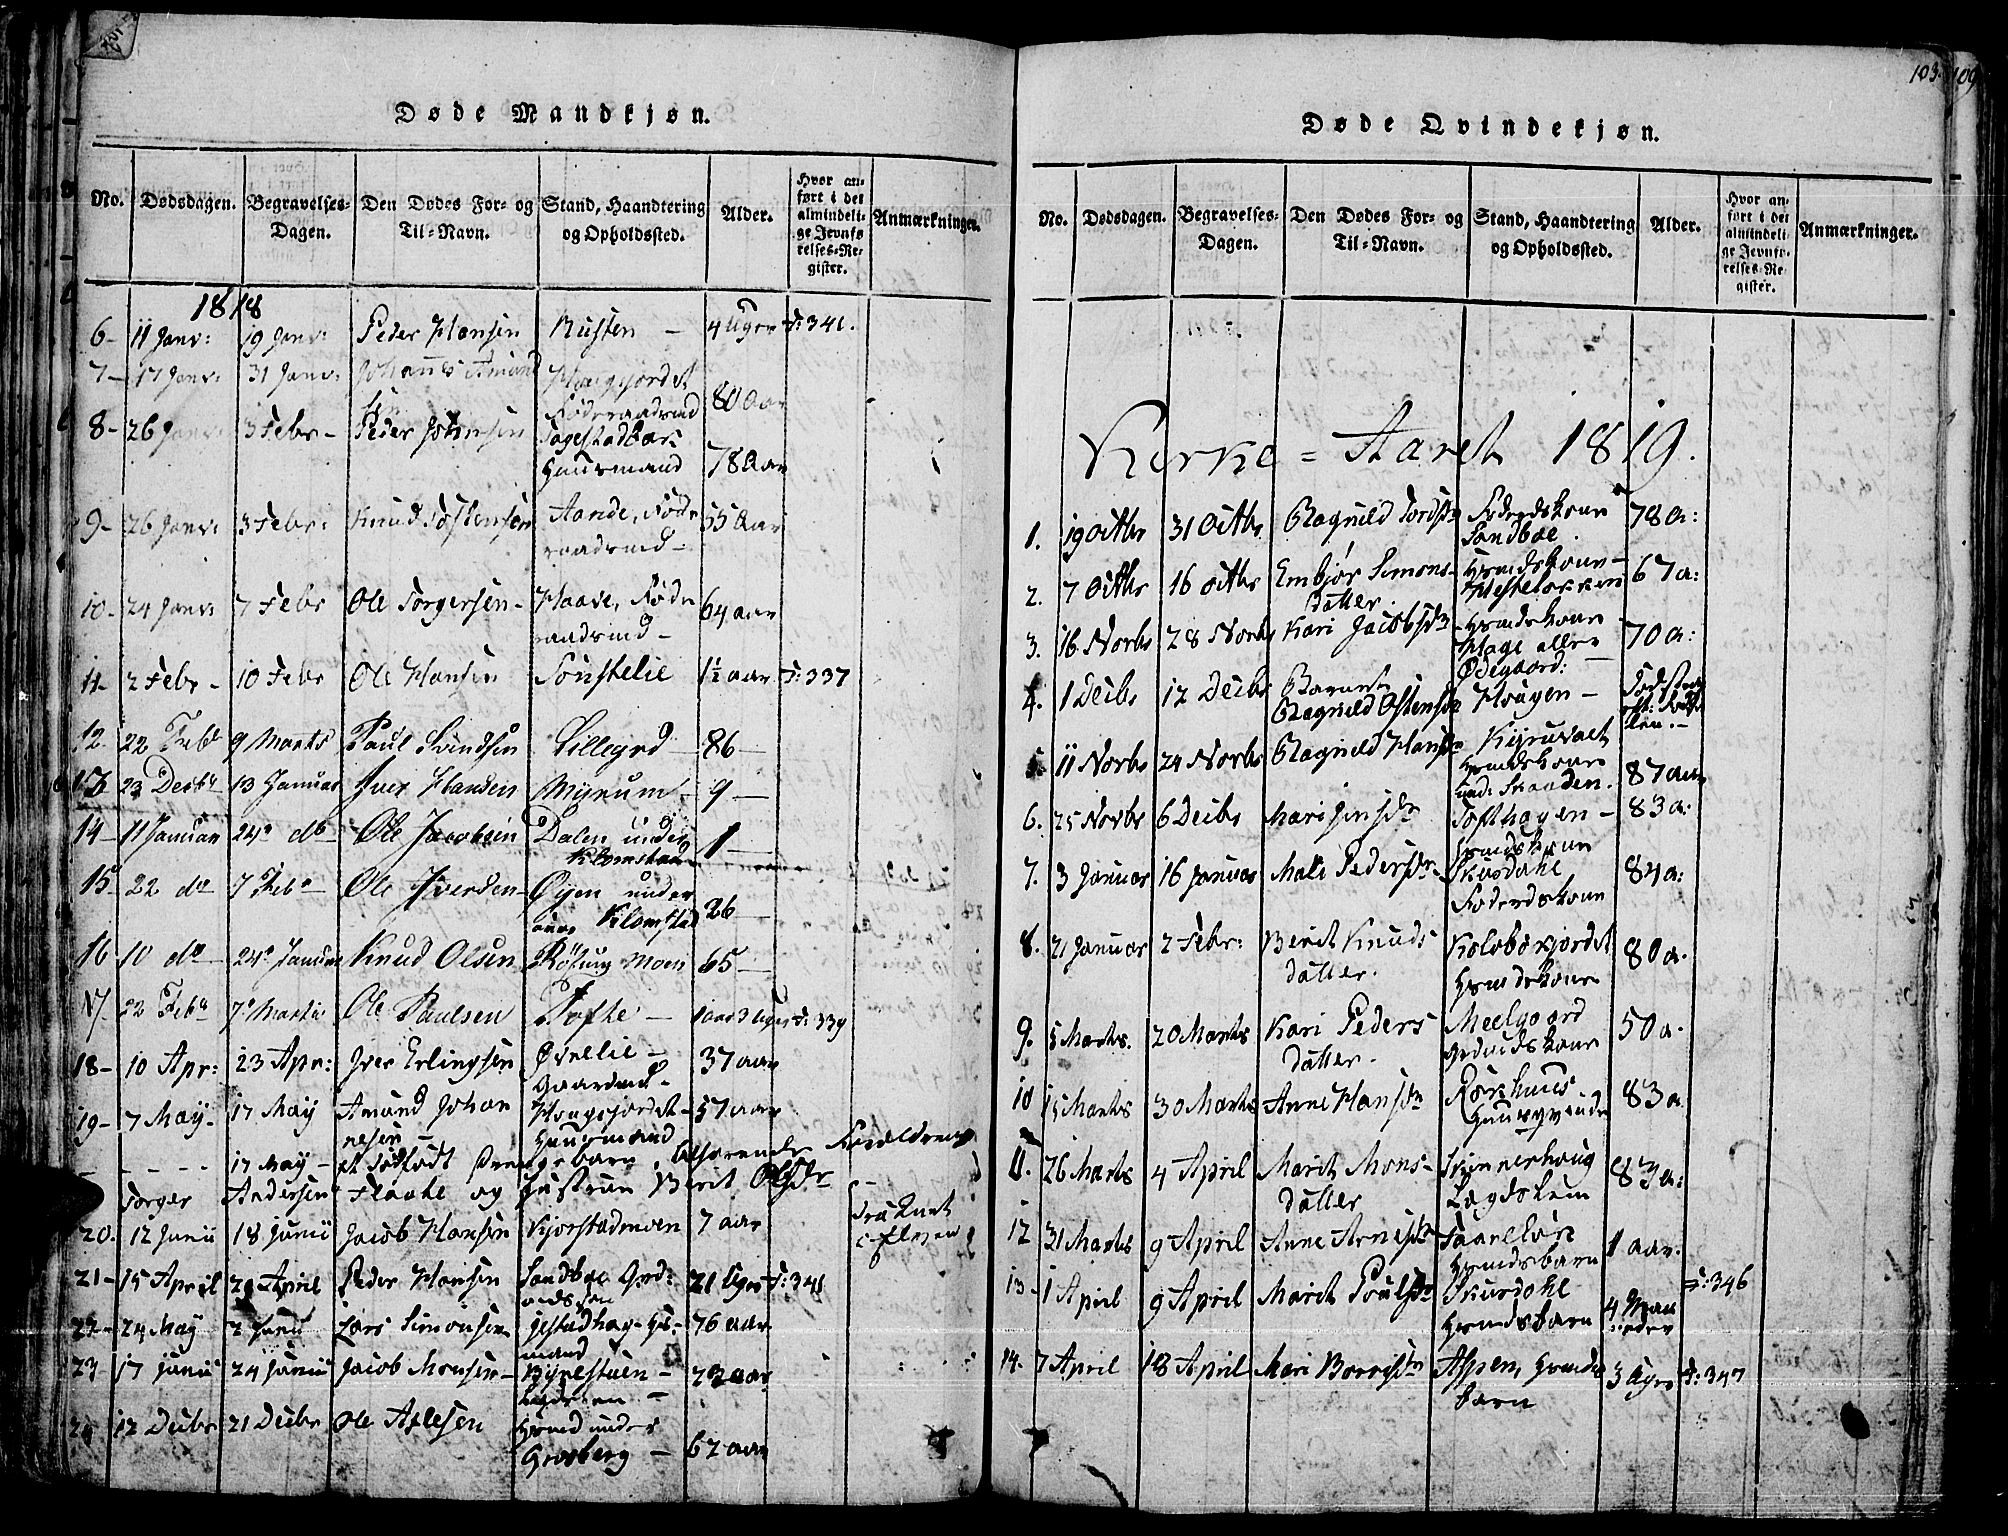 Døde Mandkjøn.
No. Dødsdagen. Begravelses-Dagen. Den Dødes For- og Til-Navn. Stand, Haandtering og Opholdssted. Alder. Hvor anført i det almindelige Jevnførelses-Register. Anmærkninger.
1818
6- 11 Janv: 19 Janv: Peder Hansen Rusten - 4 Uger F: 341.
7- 17 Janv: 31 Janv: Johannes Amund 80 Aar
8- 26 Janv: 3 Febr- Peder Johnsen Huusmand 78 Aar
9- 26 Janv: 3 Febr: Knud Tostensen Aande, Føderaadsmd- 55 Aar
10- 24 Janv: 7 Febr Ole Torgersen- Haave, Føderaadsmd- 64 aar
11- 2 Febr- 10 Febr Ole Hansen Sønstelie 1½ aar F: 337
12- 22 Febr 9 Marts Paul Svindsen Lillegrd - 86 -
13 23 Decbr 13 Januar Iver Hansen Myrum - 9 -
14- 11 Januar 24de do Ole Jacobsen Dalen under Klomstad 1 -
15 22 do 7 Feb Ole Iversen Øyen under Klomstad 26 -
16 10 do 24de Januar Knud Olsen Moen 65 -
17 22 Feb 7de Martii Ole Paulsen Tofte - 1 aar 3 Uger F: 339
18- 10 Apr: 23 Apr: Iver Erlingsen Øvrelie - Gaardmd- 37 aar
19- 7 May- 17 May Amund Johannesen - Haugsjordet- Huusmand 57 aar
- - - - - 17 May - et Dødfødt Drengebarn, Forældrene
Torger Andersen Flaate og Hustrue Berit Olsdr
20. 12 Junii 18 Junii Jacob Hansen Kjorstadmoen 7 aar Druknet i Elven
21- 15 April 20 April Peder Hansen Sandboe Grd: 21 Uger F: 341
22- 24 May 2 Junii Lars Simonsen Hs-mand 76 aar
23- 17 Junii 24 Junii Jacob Monsen- Bynestuen -
24 12 Decbr 21 Decbr Ole Axlesen Hsmd under Grosberg - 62 aar
103. 109
Døde Qvindekjøn.
No. Dødsdagen. Begravelses-Dagen. Den Dødes For- og Til-Navn. Stand, Haandtering og Opholdssted. Alder. Hvor anført i det almindelige Jevnførelses-Register. Anmærkninger.
Kirke = Aaret 1819.
1. 19 Octbr 31 Octbr Ragnild Tordsdr Føderdskone Sandboe. 78 a:
2. 7 Octbr 16 octbr Embjør Simons-datter Hsmdskone- 67 a:
3. 16 Novbr 28 Novbr Kari Jacobsdr Hsmdskone Hage eller Ødegaard: 70 a:
4. 1 Decbr 12 Decbr Barnet Ragnild Ostensdr Haagen -
5. 11 Novbr 24 Novbr Ragnild Hansdr Hsmdskone und: Skaaden. 87 aar
6. 25 Novbr 6 Decbr Mari Jensdr Tofthagen - Hsmdskone 83 a:
7. 3 Januar 16 Januar Mali Pedersdr- Skurdahl Føderdskone 84 a:
8. 21 Januar 2 Febr: Berit Knuds datter. Hsmdskone 80 a.
9. 5 Marts. 20 Marts Kari Peders datter. Meelgaard Grdmdskone 50 a.
10 15 Marts 30 Marts Anne Hansdr Rørhuus Huusqvinde 83 a
11. 26 Marts 4 April Marit Mons-datter Skinnerhoug Lægdslem 83 a:
12 31 Marts 9 April Anne Arnesdr Hsmdsbarn 1 aar.
13. 1 April 9 April Marit Poulsdr Skurdahl Hsmdsbarn 4 Maaneder F: 346
14. 7 April 18 April Mari Borrisdr Aspen, Hsmdsbarn 3 Uger F: 347